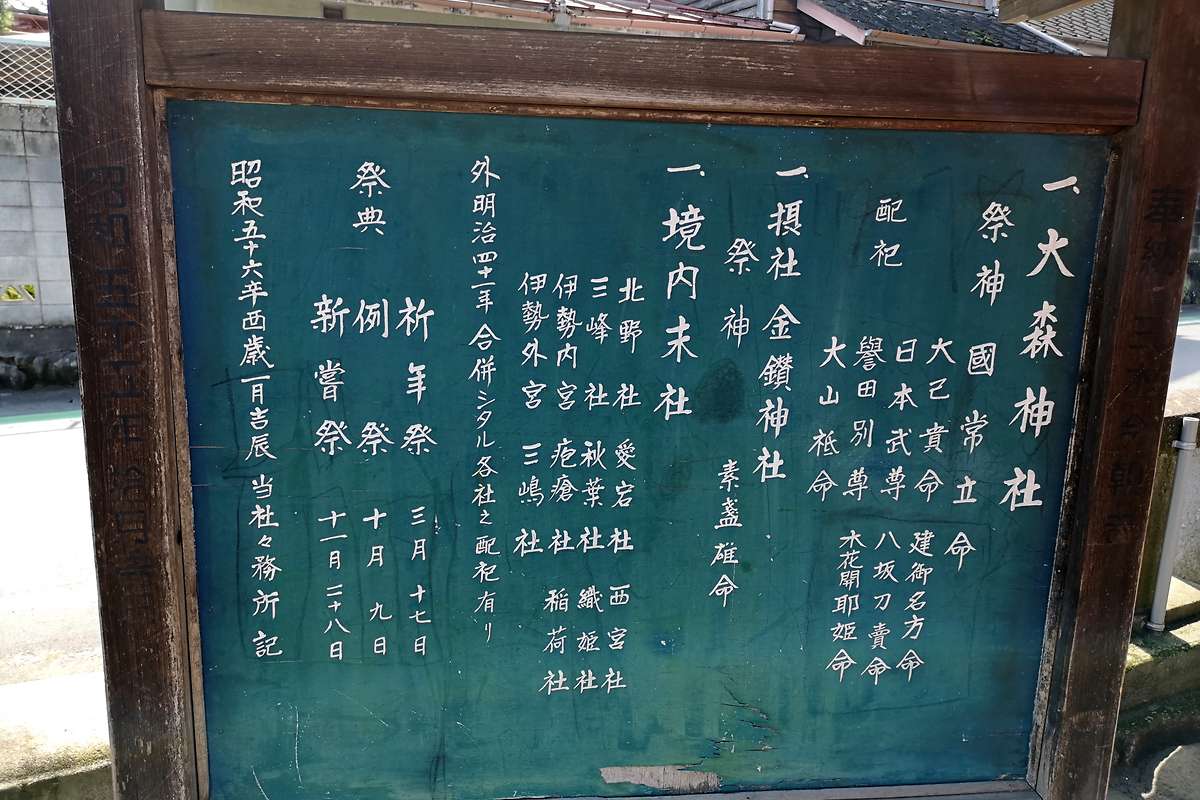 一、大森神社
祭神 國常立命
配祀
大己貴命 建御名方命
日本武尊 八坂刀賣命
譽田別尊 木花開耶姫命
大山祇命
一、摂社 金鑚神社
祭神 素盞雄命
一、境内末社
北野社 愛宕社 西宮社
三峰社 秋葉社 織姫社
伊勢内宮 疱瘡社 稲荷社
伊勢外宮 三嶋社
外明治四十一年合併シタル各社之配祀有リ
祭典
祈年祭 三月十七日
例祭 十月九日
新嘗祭 十一月二十八日
昭和五十六年酉歳一月吉辰 当社々務所記